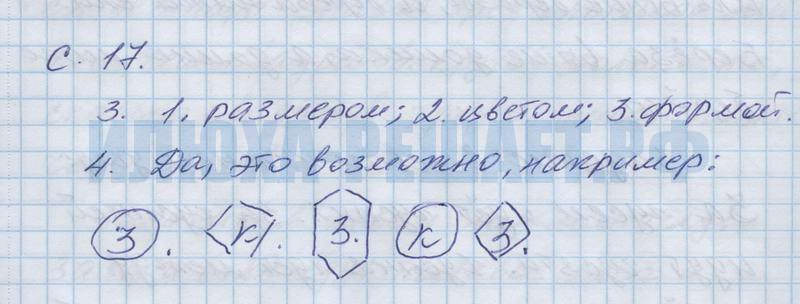 С. 17.
3. 1. размером; 2. цветом; 3. формой.
ИЛЮХА РЕШАЕТ.РФ
4. Да, это возможно, например:
З. К. З. К З.